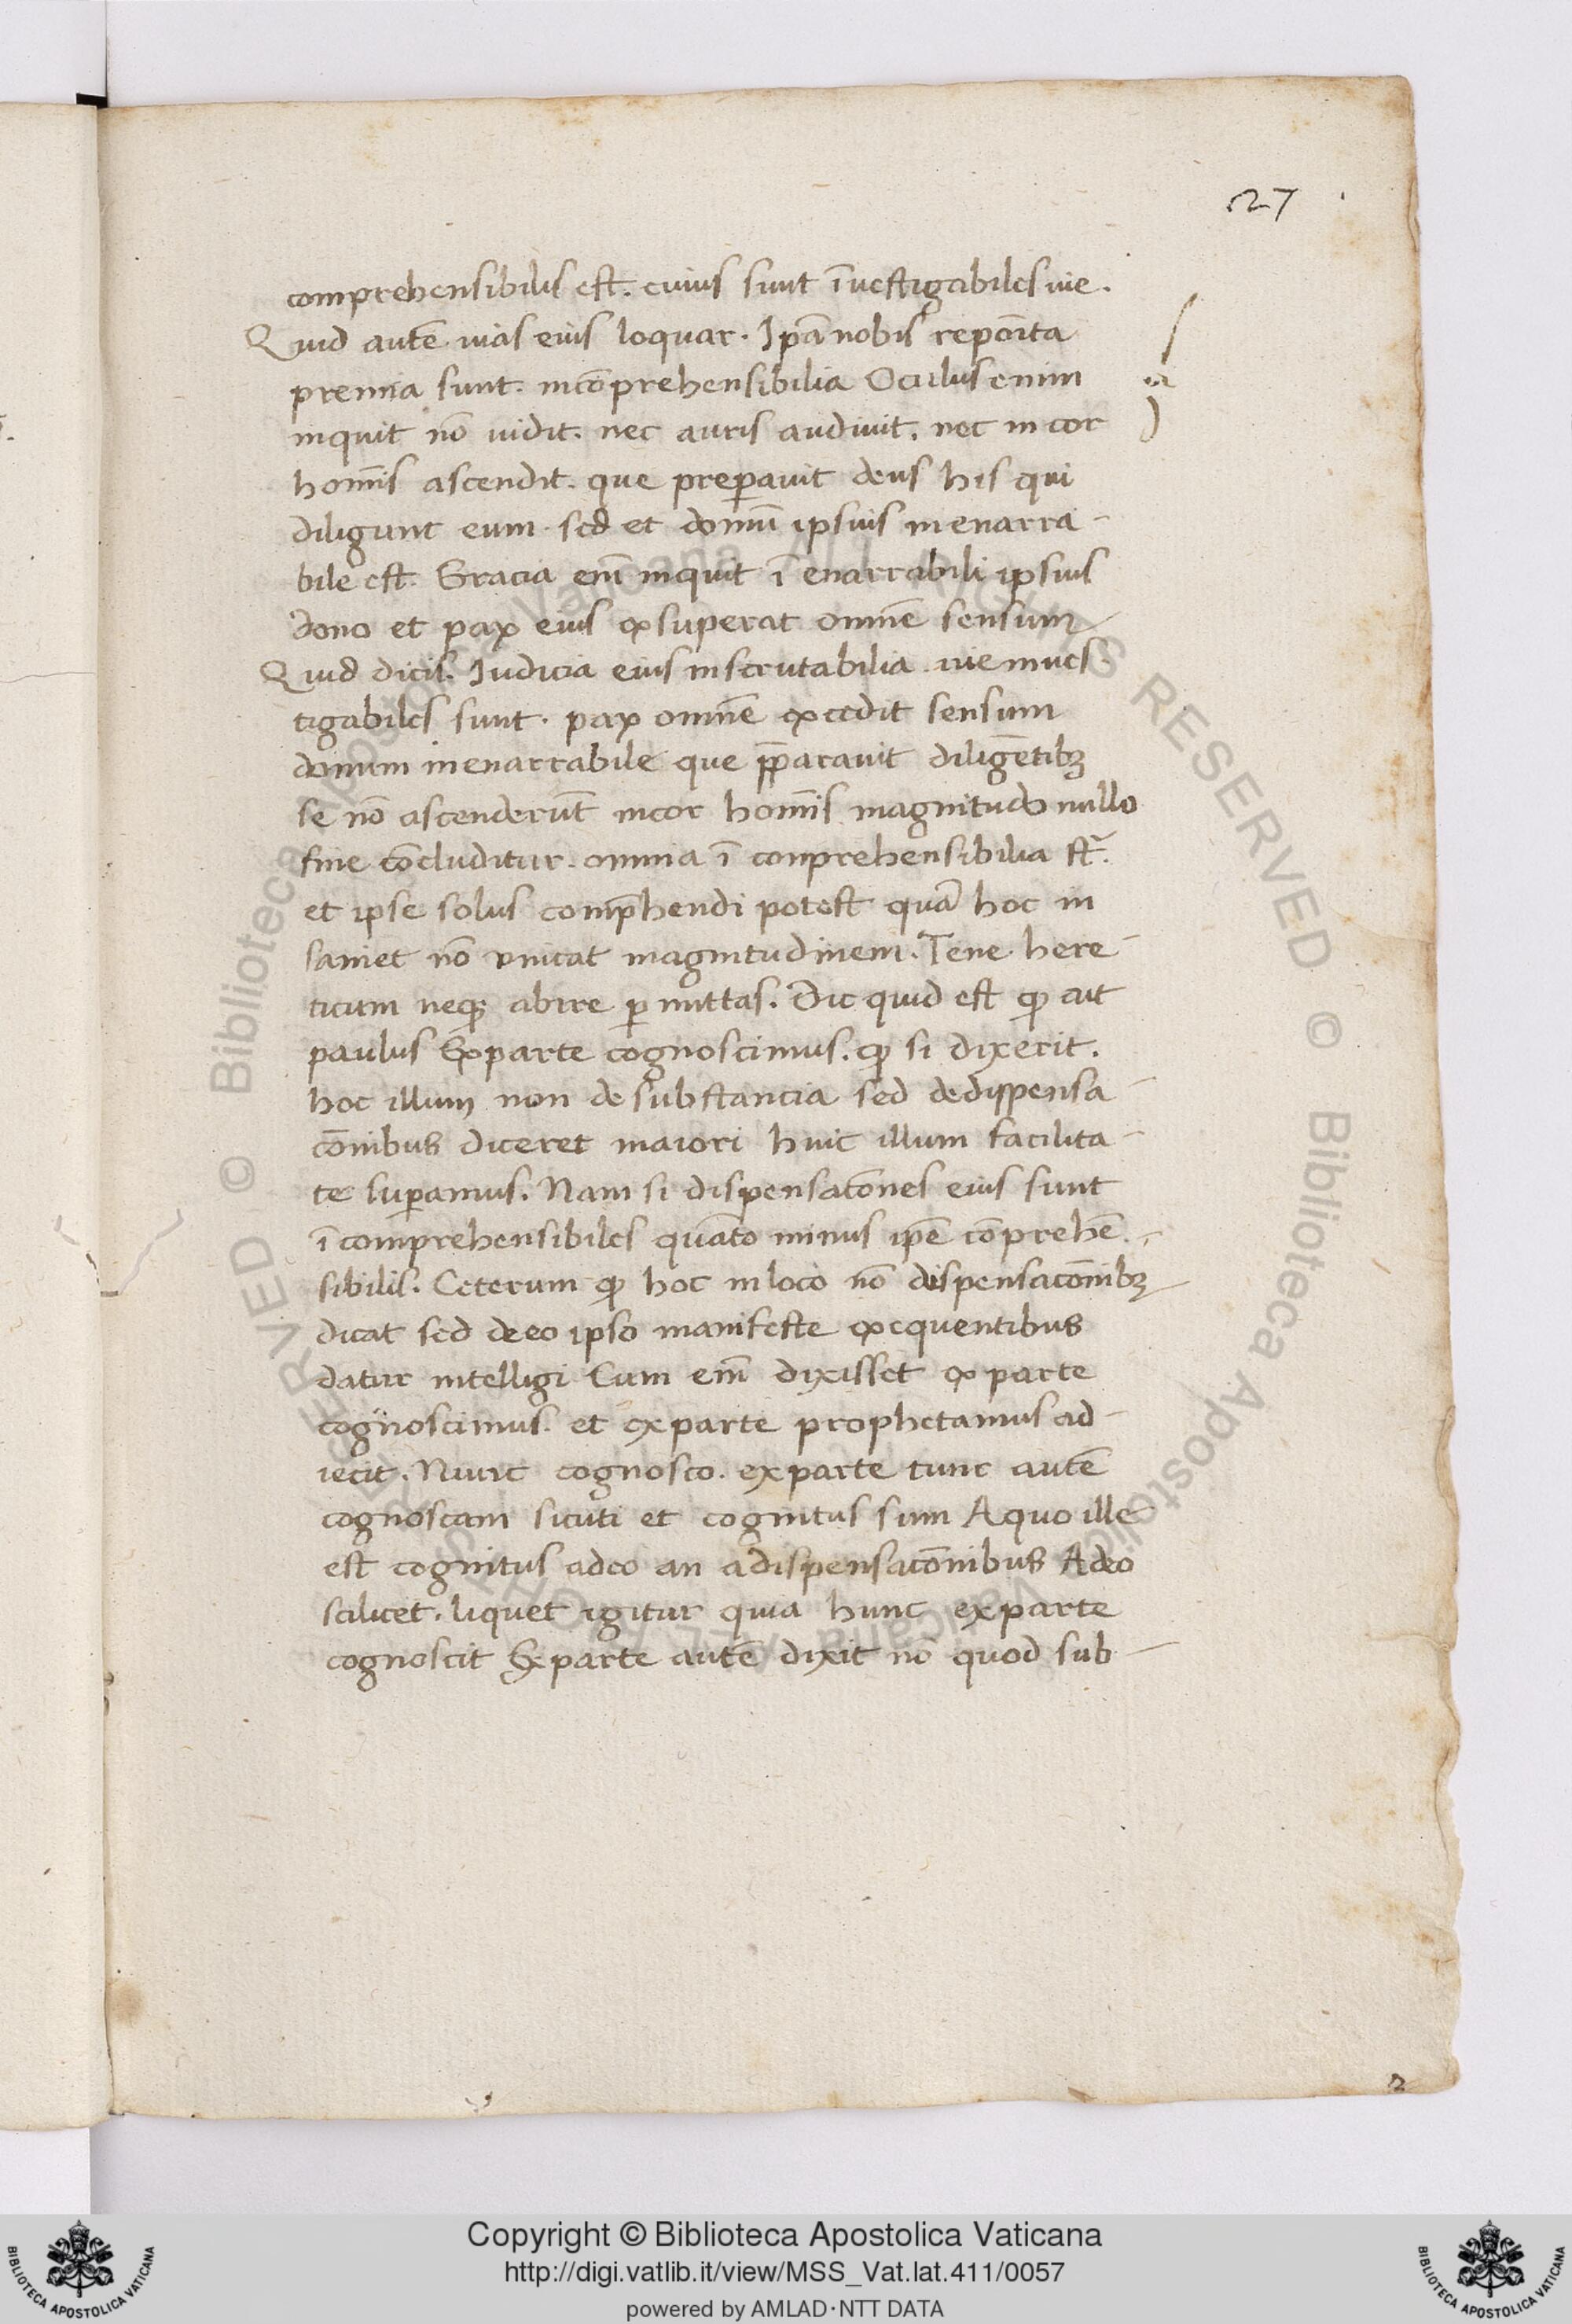 27
comprehensibilis est. cuius sunt īuestigabiles uie.
Quid autē uias eius loquar. Ipā nobis repoīta
premia sunt. incōprehensibilia Oculus enim
inquit nō uidit. nec auris audiuit. nec in cor
hoīnis ascendit. que preparauit deus his qui
diligunt eum. sed et donū ipsius inenarra-
bile est. Gracia enī inquit ī enarrabili ipsius
dono et pax eius exsuperat omnē sensum
Quid dicis. Iudicia eius inscrutabilia uie inues-
tigabiles sunt. pax omnē excedit sensum
donum inenarrabile que p̄parauit diligētibꝫ
se nō ascenderūt in cor hoīnis magnitudo nullo
fine cōcluditur. omnia ī conprehensibilia st̄.
et ipse solus comp̄hendi potest quā hoc in
saniet nō uincat magnitudinem. Tene here-
ticum neqꝫ abire ꝑmittas. Dic quid est ꝙ ait
paulus Ex parte cognoscimus. ꝙ si dixerit.
hoc illum non de substancia sed de dispensa-
cōnibus diceret maiori huic illum facilita-
te suꝑamus. Nam si dispensacōnes eius sunt
ī comprehensibiles quāto minus ipē cōprehē-
sibilis. Ceterum ꝙ hoc in loco nō dispensacōnibꝫ
dicat sed de eo ipso manifeste ex equentibus
datur intelligi Cum enī dixisset ex parte
cognoscimus. et ex parte prophetamus ad-
iecit. Nunc cognosco. ex parte tunc autē
cognoscam sicuti et cognitus sum A quo ille
est cognitus a deo an a dispensacōnibus A deo
scilicet. liquet igitur quia hunc ex parte
cognoscit Ex parte autē dixit nō quod sub-
© Biblioteca Apostolica Vaticana ALL RIGHTS RESERVED © Biblioteca Apostolica Vaticana ALL RIGHTS RESERVED
Copyright © Biblioteca Apostolica Vaticana
http://digi.vatlib.it/view/MSS_Vat.lat.411/0057
powered by AMLAD·NTT DATA
BIBLIOTECA APOSTOLICA VATICANA
BIBLIOTECA APOSTOLICA VATICANA